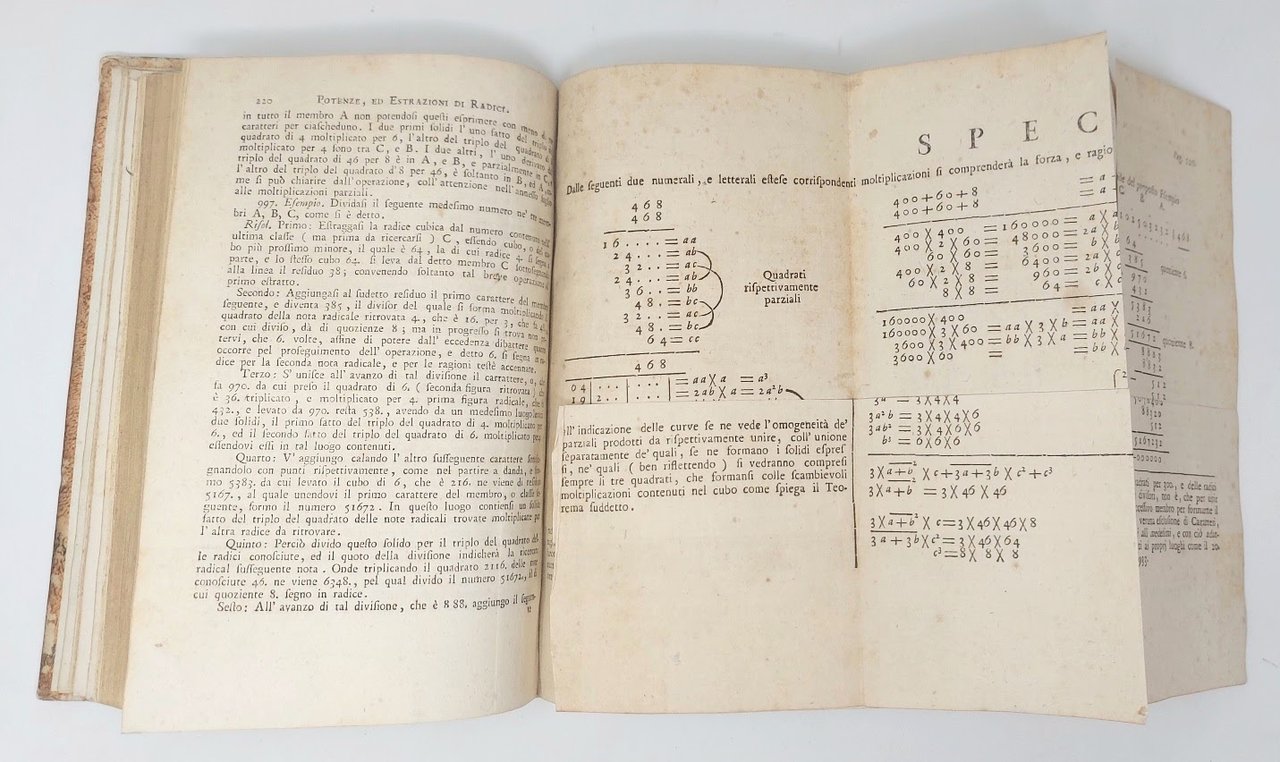 220 POTENZE, ED ESTRAZIONI DI RADICI.
in tutto il membro A non potendosi questi esprimere con meno di tre
caratteri per ciascheduno. I due primi solidi l' uno fatto del triplo del
quadrato di 4 moltiplicato per 6, l'altro del triplo del quadrato di
moltiplicato per 4 sono tra C, e B. I due altri, l' uno derivato dal
triplo del quadrato di 46 per 8 è in A, e B, e parzialmente in C,
l'altro del triplo del quadrato d'8 per 46, è soltanto in B, ed A,
me si può chiarire dall'operazione, coll' attenzione nell'annesso foglio
alle moltiplicazioni parziali.
997. Esempio. Dividasi il seguente medesimo numero ne' tre
bri A, B, C, come si è detto.
Risol. Primo: Estraggasi la radice cubica dal numero contenuto nell'
ultima classe ( ma prima da ricercarsi ) C, essendo cubo, o del
bo più prossimo minore, il quale è 64, la di cui radice 4. si segni
parte, e lo stesso cubo 64. si leva dal detto membro C sottosegnando
alla linea il residuo 38; convenendo soltanto tal breve operazione al
primo estratto.
Secondo: Aggiungasi al sudetto residuo il primo carattere del membro
seguente, e diventa 385, il divisor del quale si forma moltiplicando il
quadrato della nota radicale ritrovata 4., che è 16. per 3, che fa 48,
con cui diviso, dà di quoziente 8; ma in progresso si trova non
tervi, che 6. volte, affine di potere dall' eccedenza dibattere quanto
occorre pel proseguimento dell' operazione, e detto 6. si segna in
dice per la seconda nota radicale, e per le ragioni testè accennate.
Terzo: S' unisce all' avanzo di tal divisione il carattere, o, che
fa 970. da cui preso il quadrato di 6. ( seconda figura ritrovata ) che
è 36. triplicato, e moltiplicato per 4. prima figura radicale, che
432., e levato da 970. resta 538., avendo da un medesimo luogo levati
due solidi, il primo fatto del triplo del quadrato di 4. moltiplicato per
6., ed il secondo fatto del triplo del quadrato di 6. moltiplicato per
essendovi essi in tal luogo contenuti.
Quarto: V' aggiungo calando l' altro susseguente carattere
gnandolo con punti rispettivamente, come nel partire a dandi, e
mo 5383. da cui levato il cubo di 6, che è 216. ne viene di residuo
5167., al quale unendovi il primo carattere del membro, o classe
guente, formo il numero 51672. In questo luogo contiensi un solido
fatto del triplo del quadrato delle note radicali trovate moltiplicate per
l' altra radice da ritrovare.
Quinto: Perciò divido questo solido per il triplo del quadrato del-
le radici conosciute, ed il quoto della divisione indicherà la ricercata
radical susseguente nota. Onde triplicando il quadrato 2116. delle
conosciute 46. ne viene 6348., pel qual divido il numero 51672., il di
cui quoziente 8. segno in radice.
Sesto: All' avanzo di tal divisione, che è 888. aggiungo il seguen-
Dalle seguenti due numerali, e letterali estese corrispondenti moltiplicazioni si comprenderà la forza, e ragio
468
468
16 . . . . = aa
24 . . . = ab
32 . . = ac
24 . . . = ab
36 . . = bb
48 . = bc
32 . . = ac
48 . = bc
64 = cc
Quadrati
rispettivamente
parziali
468
64 | . . . | . . . = aa X a = a³
19 | 2 . . | . . . = 2ab X a = 2a²b
ll' indicazione delle curve se ne vede l'omogeneità de'
parziali prodotti da rispettivamente unire, coll' unione
separatamente de' quali, se ne formano i solidi espres
si, ne' quali ( ben riflettendo ) si vedranno compresi
sempre li tre quadrati, che formansi colle scambievoli
moltiplicazioni contenuti nel cubo come spiega il Teo-
rema suddetto.
SPEC
400+60+8 = a
400+60+8 = a
400 X 400 = 160000 = a X a
400 X 2 X 60 = 48000 = 2a X b
60 X 60 = 3600 = b X b
400 X 2 X 8 = 6400 = 2a X c
60 X 2 X 8 = 960 = 2b X c
8 X 8 = 64 = c X c
160000 X 400 = aa X
160000 X 3 X 60 = aa X 3 X b = aa X
3600 X 3 X 400 = bb X 3 X a = bb X
3600 X 60 = = bb X
3a = 3 X 4 X 4
3a²b = 3 X 4 X 4 X 6
3ab² = 3 X 4 X 6 X 6
b³ = 6 X 6 X 6
3 X a+b² X c+3a+3b X c²+c³
3 X a+b² = 3 X 46 X 46
3 X a+b² X c = 3 X 46 X 46 X 8
3a+3b X c² = 3 X 46 X 64
c³ = 8 X 8 X 8
Pag. 220.
del proposto Esempio
C B A
64
385
quoziente 6.
970
432
5383
216
51672
quoziente 8.
512
88320
5167232
0000000